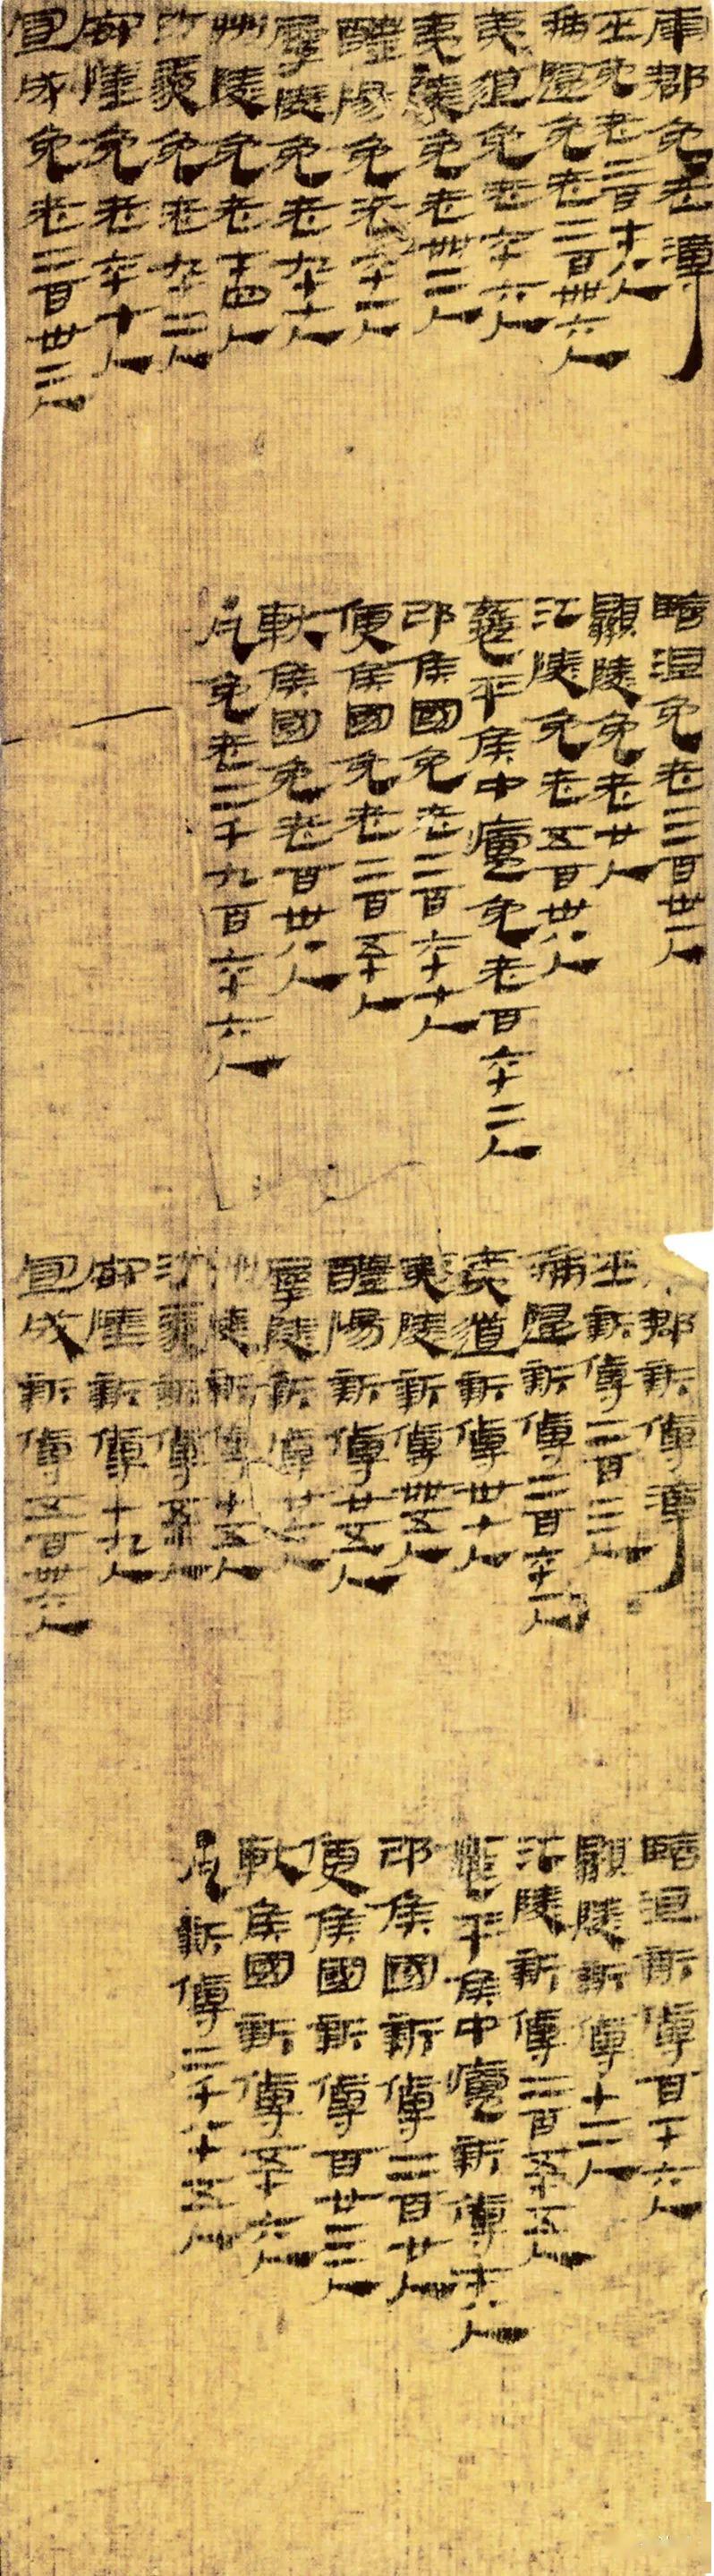 南郡免老簿
巫免老二百七十八人
秭歸免老二百卌六人
夷道免老六十六人
夷陵免老卌二人
醴陽免老六十一人
孱陵免老九十七人
州陵免老七十四人
沙羨免老九十二人
安陸免老六十七人
宜成免老二百卅二人
臨沮免老三百卅一人
顯陵免老廿人
江陵免老五百卅八人
襄平侯中廬免老百六十二人
邔侯國免老二百六十七人
便侯國免老二百五十人
軑侯國免老百卅八人
·凡免老二千九百六十六人
郡新傅簿
巫新傅二百三人
秭歸新傅二百六十一人
夷道新傅卅七人
夷陵新傅卌五人
醴陽新傅廿五人
孱陵新傅廿六人
州陵新傅十五人
沙羨新傅五十人
安陸新傅十九人
宜成新傅五百卌六人
臨沮新傅百一十六人
顯陵新傅十二人
江陵新傅二百五十五人
襄平侯中廬新傅七十八人
邔侯國新傅二百廿人
便侯國新傅百廿三人
軑侯國新傅五十六人
·凡新傅二千八十五人